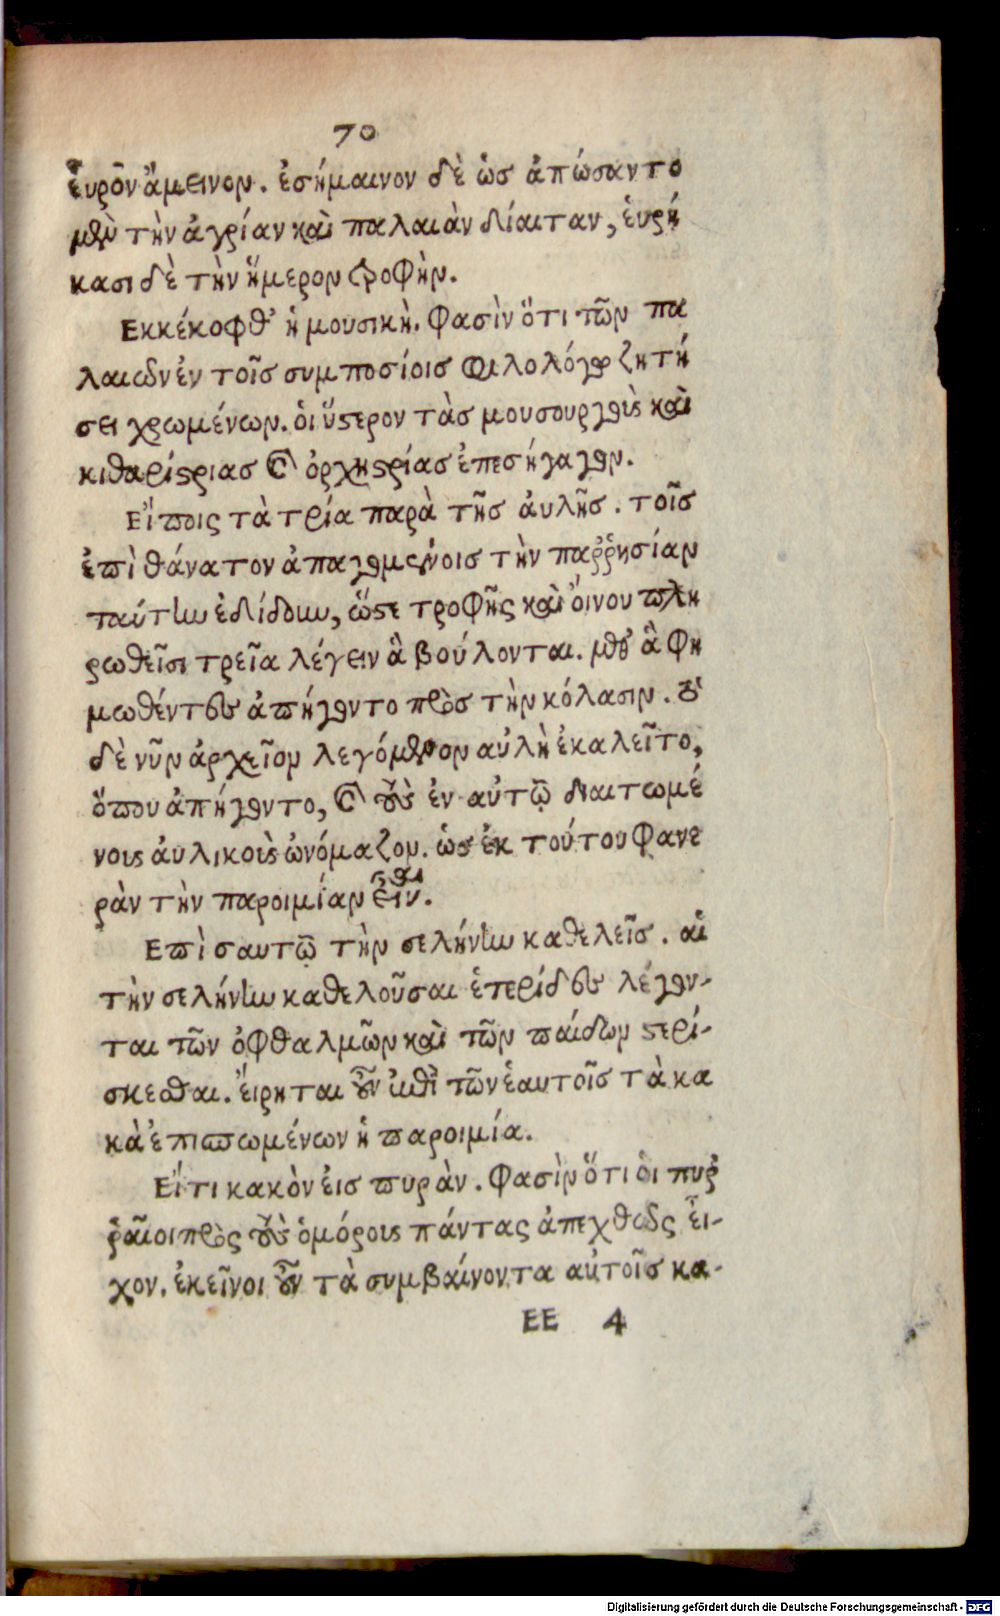 70
ἔυρον ἄμεινον. ἐσήμαινον δὲ ὡσ ἀπώσαντο
μὲν τὴν ἀγρίαν καὶ παλαιὰν δίαιταν, ἑυρή
κασι δὲ τὴν ἥμερον τροφὴν.
Εκκέκοφθ' ἡ μουσικὴ. Φασὶν ὅτι τῶν πα
λαιῶν ἐν τοῖσ συμποσίοισ φιλολόγῳ ζητή
σει χρωμένων. ὁι ὕστερον τὰσ μουσουργοὺς καὶ
κιθαρίστριασ καὶ ὀρχηστρίασ ἐπεσήγαγον.
Εἴποις τὰ τρία παρὰ τῆσ ἀυλῆσ. τοῖσ
ἐπὶ θάνατον ἀπαγομένοισ τὴν παῤῥησίαν
ταύτην ἐδίδουν, ὥστε τροφῆς καὶ ὄινου πλη
ρωθεῖσι τρεῖα λέγειν ἃ βούλονται. μεθ' ἃ φη
μωθέντες ἀπήγοντο πρὸσ τὴν κόλασιν. τὸ
δὲ νῦν ἀρχεῖον λεγόμενον αὐλὴ ἐκαλεῖτο,
ὅπου ἀπήγοντο, καὶ τοὺς ἐν αὐτῷ διαιτωμέ
νους ἀυλικοὺς ὠνόμαζον. ὡσ ἐκ τούτου φανε
ρὰν τὴν παροιμίαν εἶναι.
Επὶ σαυτῷ τὴν σελήνην καθελεῖσ. αἱ
τὴν σελήνην καθελοῦσαι ἑτερίδες λέγον-
ται τῶν ὀφθαλμῶν καὶ τῶν παίδων στερί-
σκεσθαι. ἔιρηται οὖν ἐπὶ τῶν ἑαυτοῖσ τὰ κα
κὰ ἐπισπωμένων ἡ παροιμία.
Εἴ τι κακὸν ἐισ πυρὰν. Φασὶν ὅτι ὁι πυρ
ῥαῖοι πρὸς τοὺς ὁμόρους πάντας ἀπεχθῶς εἶ-
χον. ἐκεῖνοι οὖν τὰ συμβαίνοντα αὐτοῖσ κα-
EE 4
Digitalisierung gefördert durch die Deutsche Forschungsgemeinschaft - DFG